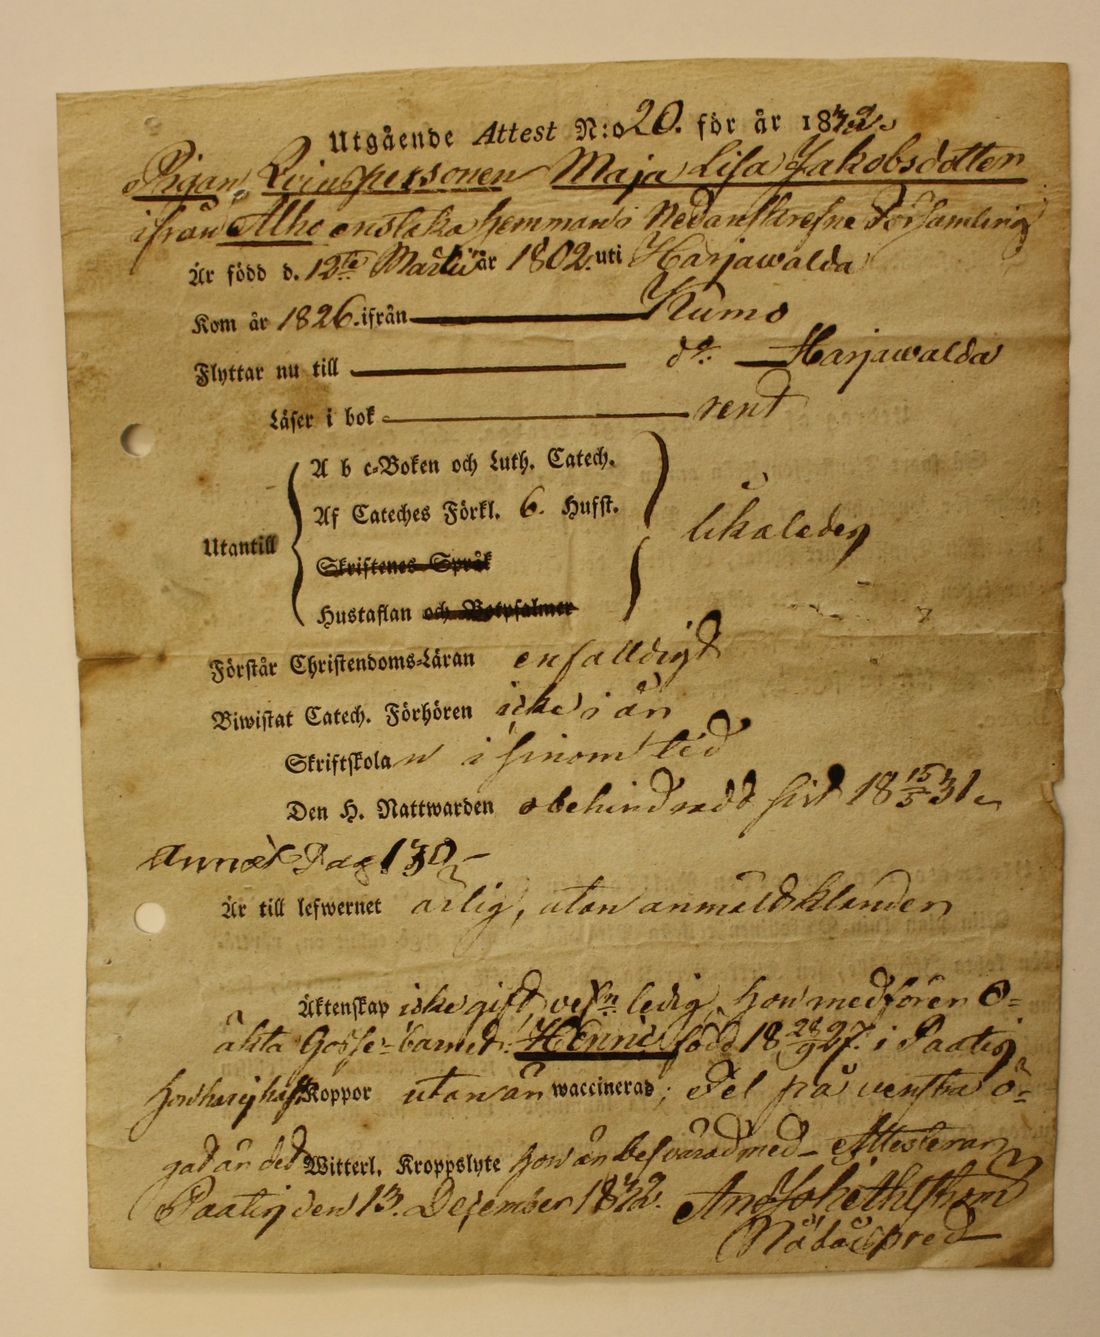 Utgående Attest N:o 20. för år 1832.
Pigan, Qvinspersonen Maja Lisa Jakobsdotter
ifrån Alho enstaka hemman i Nedanskrefne Församling
Är född d. 12te Martii år 1802. uti Harjawalda
Kom år 1826. ifrån Kumo
Flyttar nu till do. Harjawalda
Läser i bok rent
A b c-Boken och Luth. Catech.
Af Cateches Förkl. 6. Hufst.
Utantill likaledes
Skriftenes Språk
Hustaflan och Botpsalmer
Förstår Christendoms-Läran enfalldigt
Biwistat Catech. Förhören icke i år
Skriftskolan i sinom tid
Den H. Nattwarden obehindradt sist 18 15/5 31
Är till lefwernet ärlig, utan anmäldt klander
Äktenskap icke gift, ledig, hon medförer o=
äkta Gosse-barnet Henric född 18 28/9 27. i Paatis
Koppor utan är waccinerad; Fel på venstra ö=
gat är det Witterl. Kroppslyte hon är besvärad med Attesterar
Paatis den 13. December 1832.